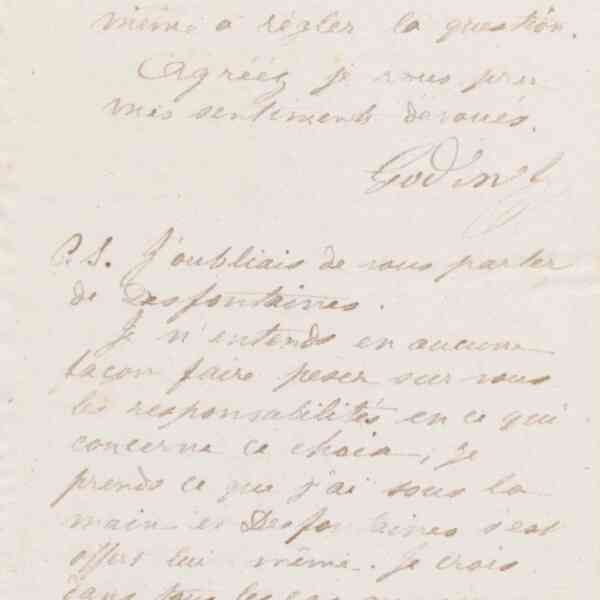 même à régler la question.
Agréez je vous prie
mes sentiments dévoués.
Godin
P.S. J'oubliais de vous parler
de Desfontaines.
Je n'entends en aucune
façon faire peser sur vous
les responsabilités en ce qui
concerne ce choix, je
prends ce que j'ai sous la
main et Desfontaines s'est
offert lui même. Je crois
dans tous les cas